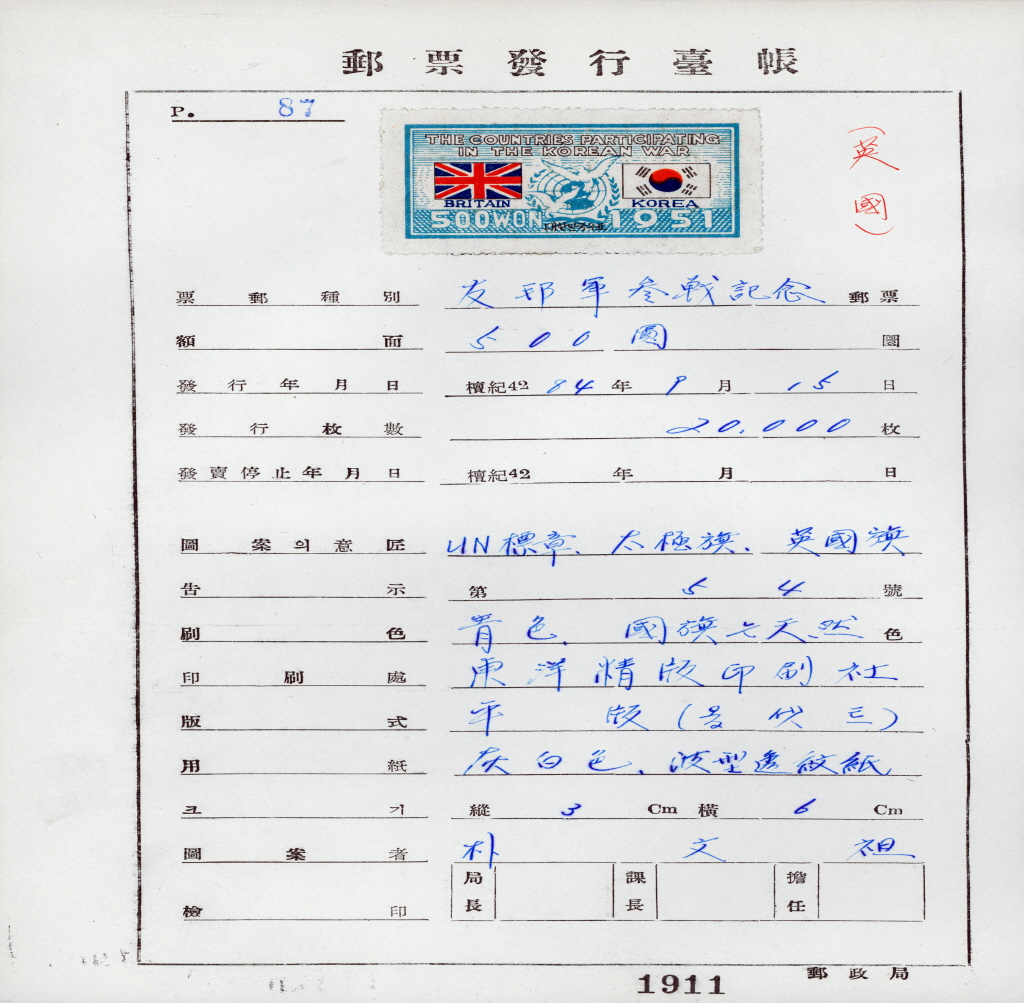 郵票發行臺帳
P. 87
THE COUNTRIES PARTICIPATING
IN THE KOREAN WAR
BRITAIN KOREA
500WON 1951
(英國)
票郵種別 友邦軍參戰記念 郵票
額面 500圓 圜
發行年月日 檀紀4284年9月15日
發行枚數 20,000枚
發賣停止年月日 檀紀42 年 月 日
圖案의意匠 UN標章、太極旗、英國旗
告示 第54號
刷色 靑色、國旗는天然色
印刷處 東洋精版印刷社
版式 平版(옵셋트)
用紙 灰白色、波型透紋紙
크기 縱3Cm橫6Cm
圖案者 朴文祖
檢印 局長 課長 擔任
1911 郵政局